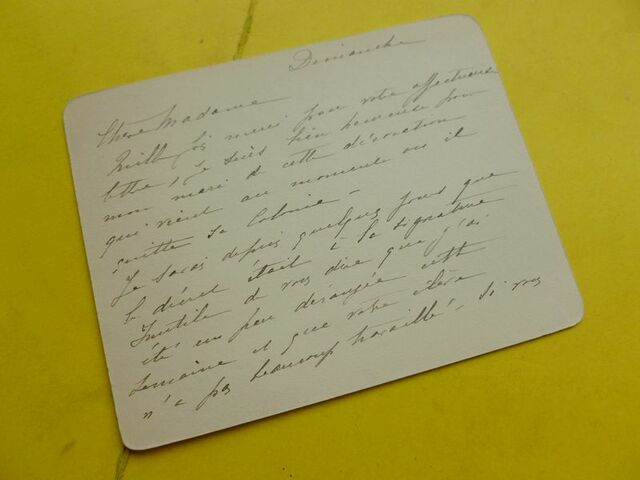 Dimanche
Chère Madame
Mille fois merci pour votre affectueuse
lettre, je suis bien heureuse pour
mon mari de cette décoration
qui vient au moment où il
quitte sa Colonie –
Je savais depuis quelques jours que
le décret était à la signature
Inutile de vous dire que j'ai
été un peu dérangée cette
semaine et que votre élève
n'a pas beaucoup travaillé – Si vous